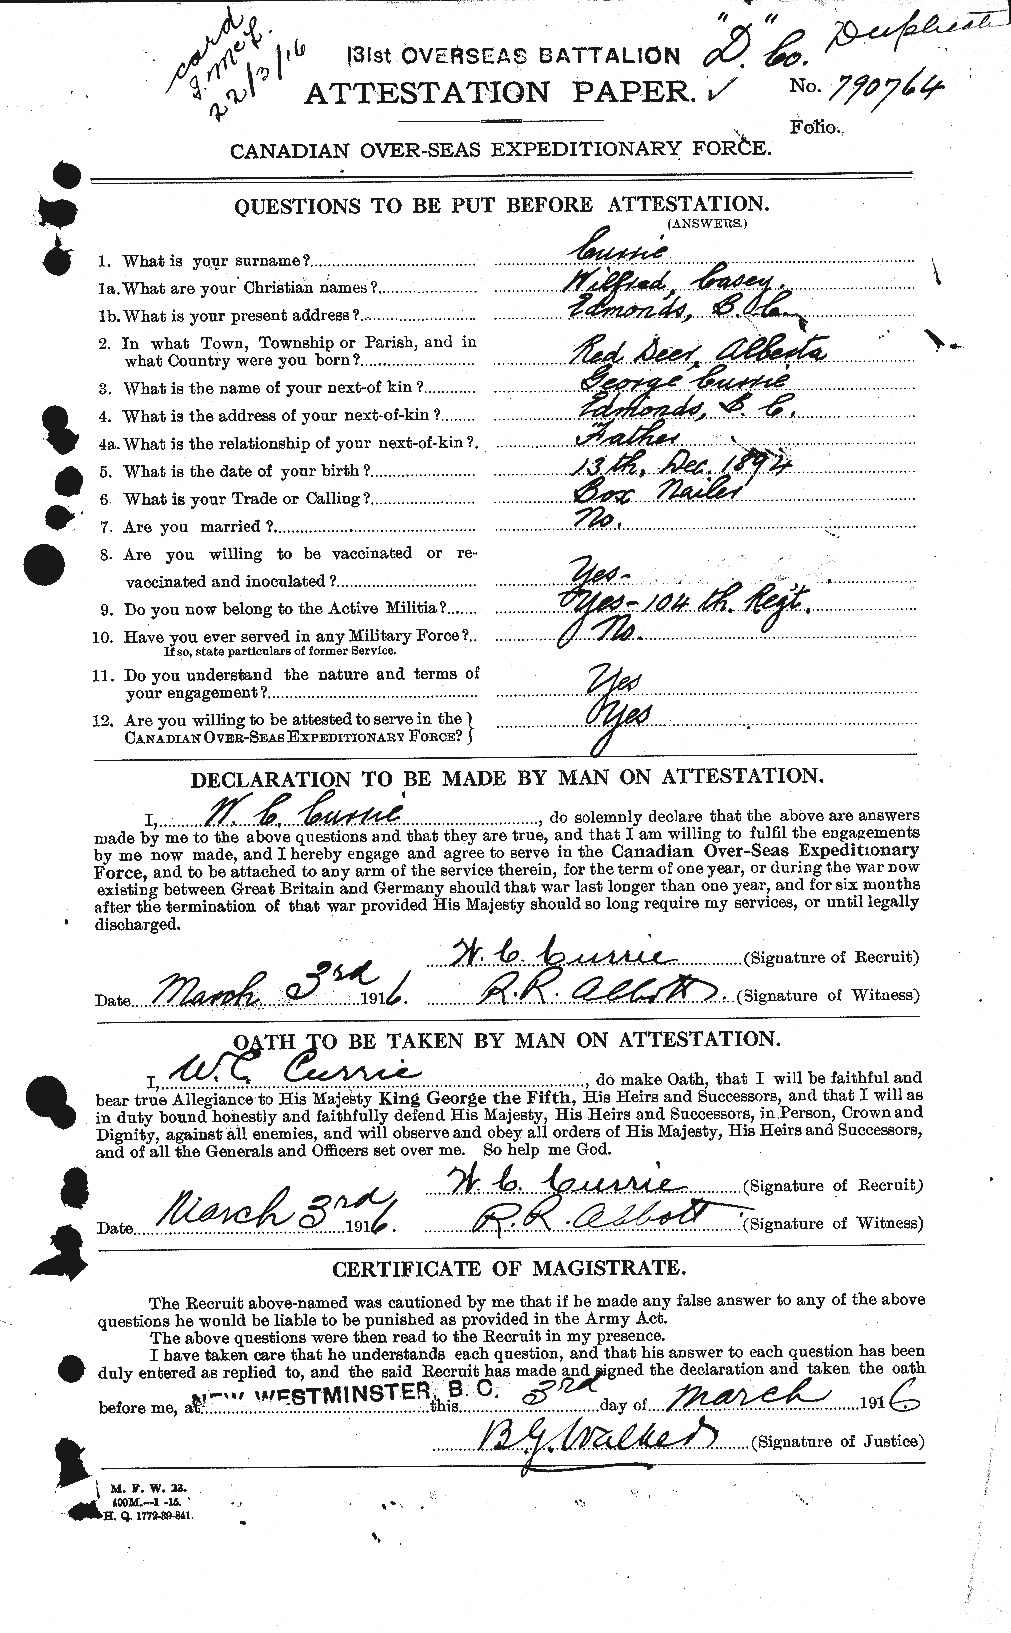 card
22/3/16
"D" Co. Duplicate
131st OVERSEAS BATTALION
ATTESTATION PAPER. ✓ No. 790764
Folio.
CANADIAN OVER-SEAS EXPEDITIONARY FORCE.
QUESTIONS TO BE PUT BEFORE ATTESTATION.
(ANSWERS.)
1. What is your surname? Currie
1a. What are your Christian names? Wilfred, Casey.
1b. What is your present address? Edmonds, B.C.
2. In what Town, Township or Parish, and in
what Country were you born? Red Deer, Alberta
3. What is the name of your next-of kin? George Currie
4. What is the address of your next-of-kin? Edmonds, B. C.
4a. What is the relationship of your next-of-kin? Father
5. What is the date of your birth? 13th. Dec. 1894
6 What is your Trade or Calling? Box Nailer
7. Are you married? No.
8. Are you willing to be vaccinated or re-
vaccinated and inoculated? Yes-
9. Do you now belong to the Active Militia? Yes-104th. Regt.
10. Have you ever served in any Military Force? No.
If so, state particulars of former Service.
11. Do you understand the nature and terms of
your engagement? Yes
12. Are you willing to be attested to serve in the } Yes
CANADIAN OVER-SEAS EXPEDITIONARY FORCE? }
DECLARATION TO BE MADE BY MAN ON ATTESTATION.
I, W. C. Currie, do solemnly declare that the above are answers
made by me to the above questions and that they are true, and that I am willing to fulfil the engagements
by me now made, and I hereby engage and agree to serve in the Canadian Over-Seas Expeditionary
Force, and to be attached to any arm of the service therein, for the term of one year, or during the war now
existing between Great Britain and Germany should that war last longer than one year, and for six months
after the termination of that war provided His Majesty should so long require my services, or until legally
discharged.
W. C. Currie (Signature of Recruit)
Date March 3rd 1916. R. R. Abbott. (Signature of Witness)
OATH TO BE TAKEN BY MAN ON ATTESTATION.
I, W. C. Currie, do make Oath, that I will be faithful and
bear true Allegiance to His Majesty King George the Fifth, His Heirs and Successors, and that I will as
in duty bound honestly and faithfully defend His Majesty, His Heirs and Successors, in Person, Crown and
Dignity, against all enemies, and will observe and obey all orders of His Majesty, His Heirs and Successors,
and of all the Generals and Officers set over me. So help me God.
W. C. Currie (Signature of Recruit)
Date March 3rd 1916. R. R. Abbott (Signature of Witness)
CERTIFICATE OF MAGISTRATE.
The Recruit above-named was cautioned by me that if he made any false answer to any of the above
questions he would be liable to be punished as provided in the Army Act.
The above questions were then read to the Recruit in my presence.
I have taken care that he understands each question, and that his answer to each question has been
duly entered as replied to, and the said Recruit has made and signed the declaration and taken the oath
before me, at NEW WESTMINSTER, B. C. this 3rd day of March 1916
B. G. Walker (Signature of Justice)
M. F. W. 23.
400M.—1 -15.
H. Q. 1772-39-841.